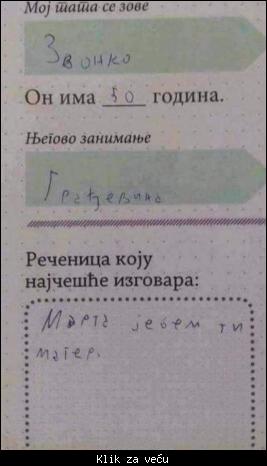 Мој тата се зове
Звонко
Он има 50 година.
Његово занимање
Грађевина
Реченица коју
најчешће изговара:
Марта јебем ти
матер.
Klik za veću